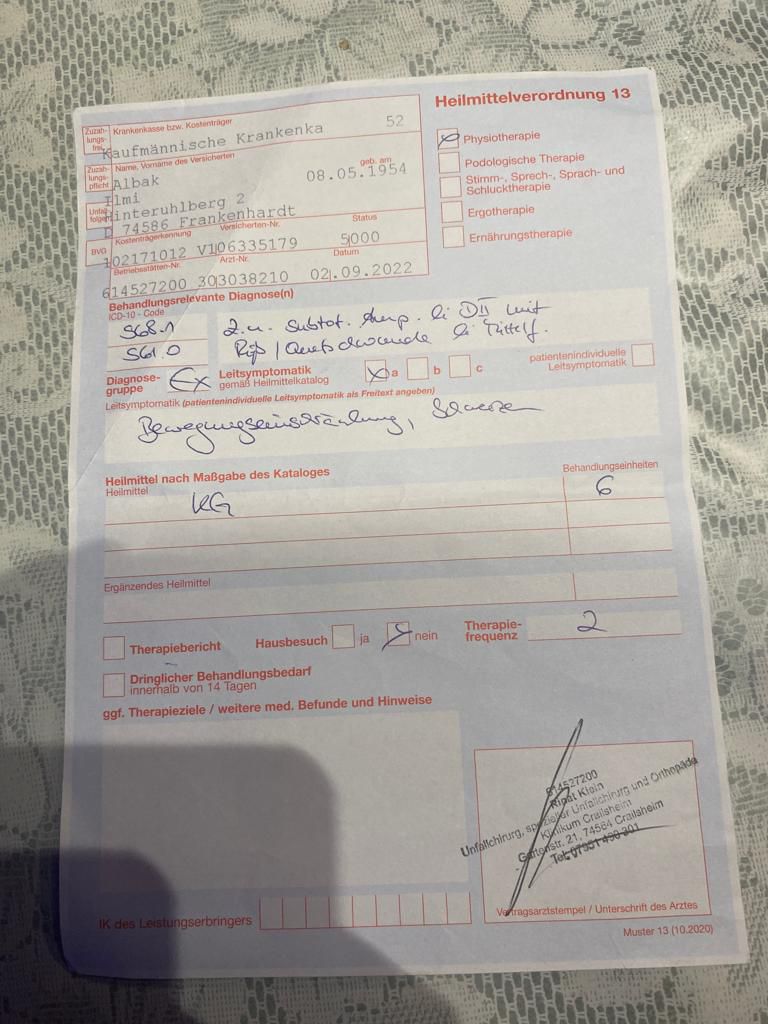 Heilmittelverordnung 13
Zuzah-
lungs-
frei
Krankenkasse bzw. Kostenträger
Kaufmännische Krankenka 52
Zuzah-
lungs-
pflicht
Name, Vorname des Versicherten
Albak
geb. am
08.05.1954
Ilmi
Unfall-
folgen
Hinteruhlberg 2
D 74586 Frankenhardt
BVG
Kostenträgerkennung Versicherten-Nr. Status
102171012 V106335179 5000
Betriebsstätten-Nr. Arzt-Nr. Datum
614527200 303038210 02.09.2022
Physiotherapie
Podologische Therapie
Stimm-, Sprech-, Sprach- und
Schlucktherapie
Ergotherapie
Ernährungstherapie
Behandlungsrelevante Diagnose(n)
ICD-10 - Code
S68.1 Z.n. Subtot. Amp. li DII mit
S61.0 Riß / Quetschwunde li Mittelf.
Diagnose-
gruppe
Ex
Leitsymptomatik
gemäß Heilmittelkatalog
a b c
patientenindividuelle
Leitsymptomatik
Leitsymptomatik (patientenindividuelle Leitsymptomatik als Freitext angeben)
Bewegungseinschränkung, Schmerzen
Heilmittel nach Maßgabe des Kataloges
Heilmittel Behandlungseinheiten
KG 6
Ergänzendes Heilmittel
Therapiebericht Hausbesuch ja nein
Therapie-
frequenz
2
Dringlicher Behandlungsbedarf
innerhalb von 14 Tagen
ggf. Therapieziele / weitere med. Befunde und Hinweise
614527200
Klein
Unfallchirurg, spezieller Unfallchirurg und Orthopäde
Klinikum Crailsheim
Gartenstr. 21, 74564 Crailsheim
Tel. 07951 490 301
IK des Leistungserbringers
Vertragsarztstempel / Unterschrift des Arztes
Muster 13 (10.2020)